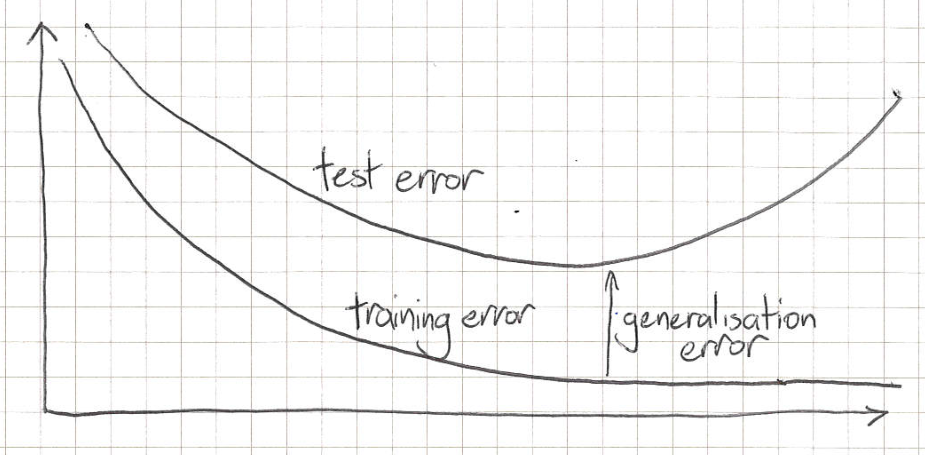 test error
training error
generalisation
error